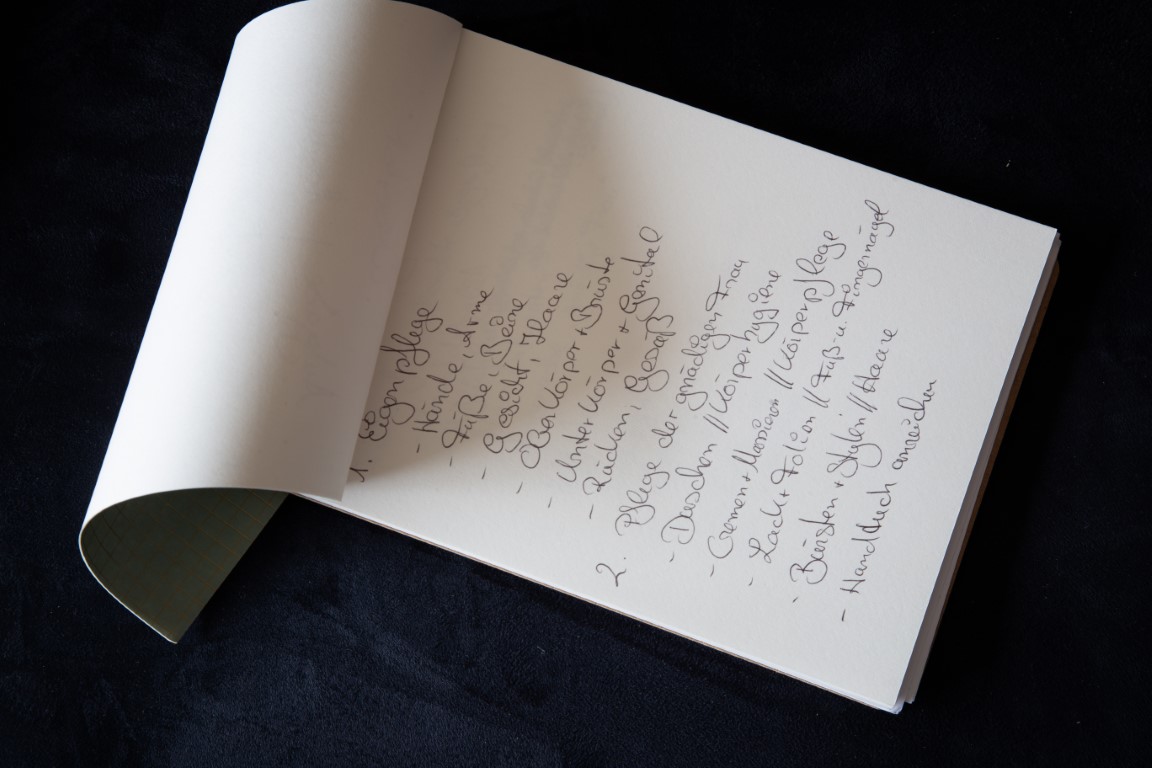 1. Eigenpflege
- Hände, Arme
- Füße, Beine
- Gesicht, Haare
- Oberkörper + Brüste
- Unterkörper + Genital
- Rücken, Gesäß
2. Pflege der gnädigen Frau
- Duschen // Körperhygiene
- Cremen + Massieren // Körperpflege
- Lack + Folien // Fuß- u. Fingernägel
- Bürsten + Stylen // Haare
- Handtuch anreichen